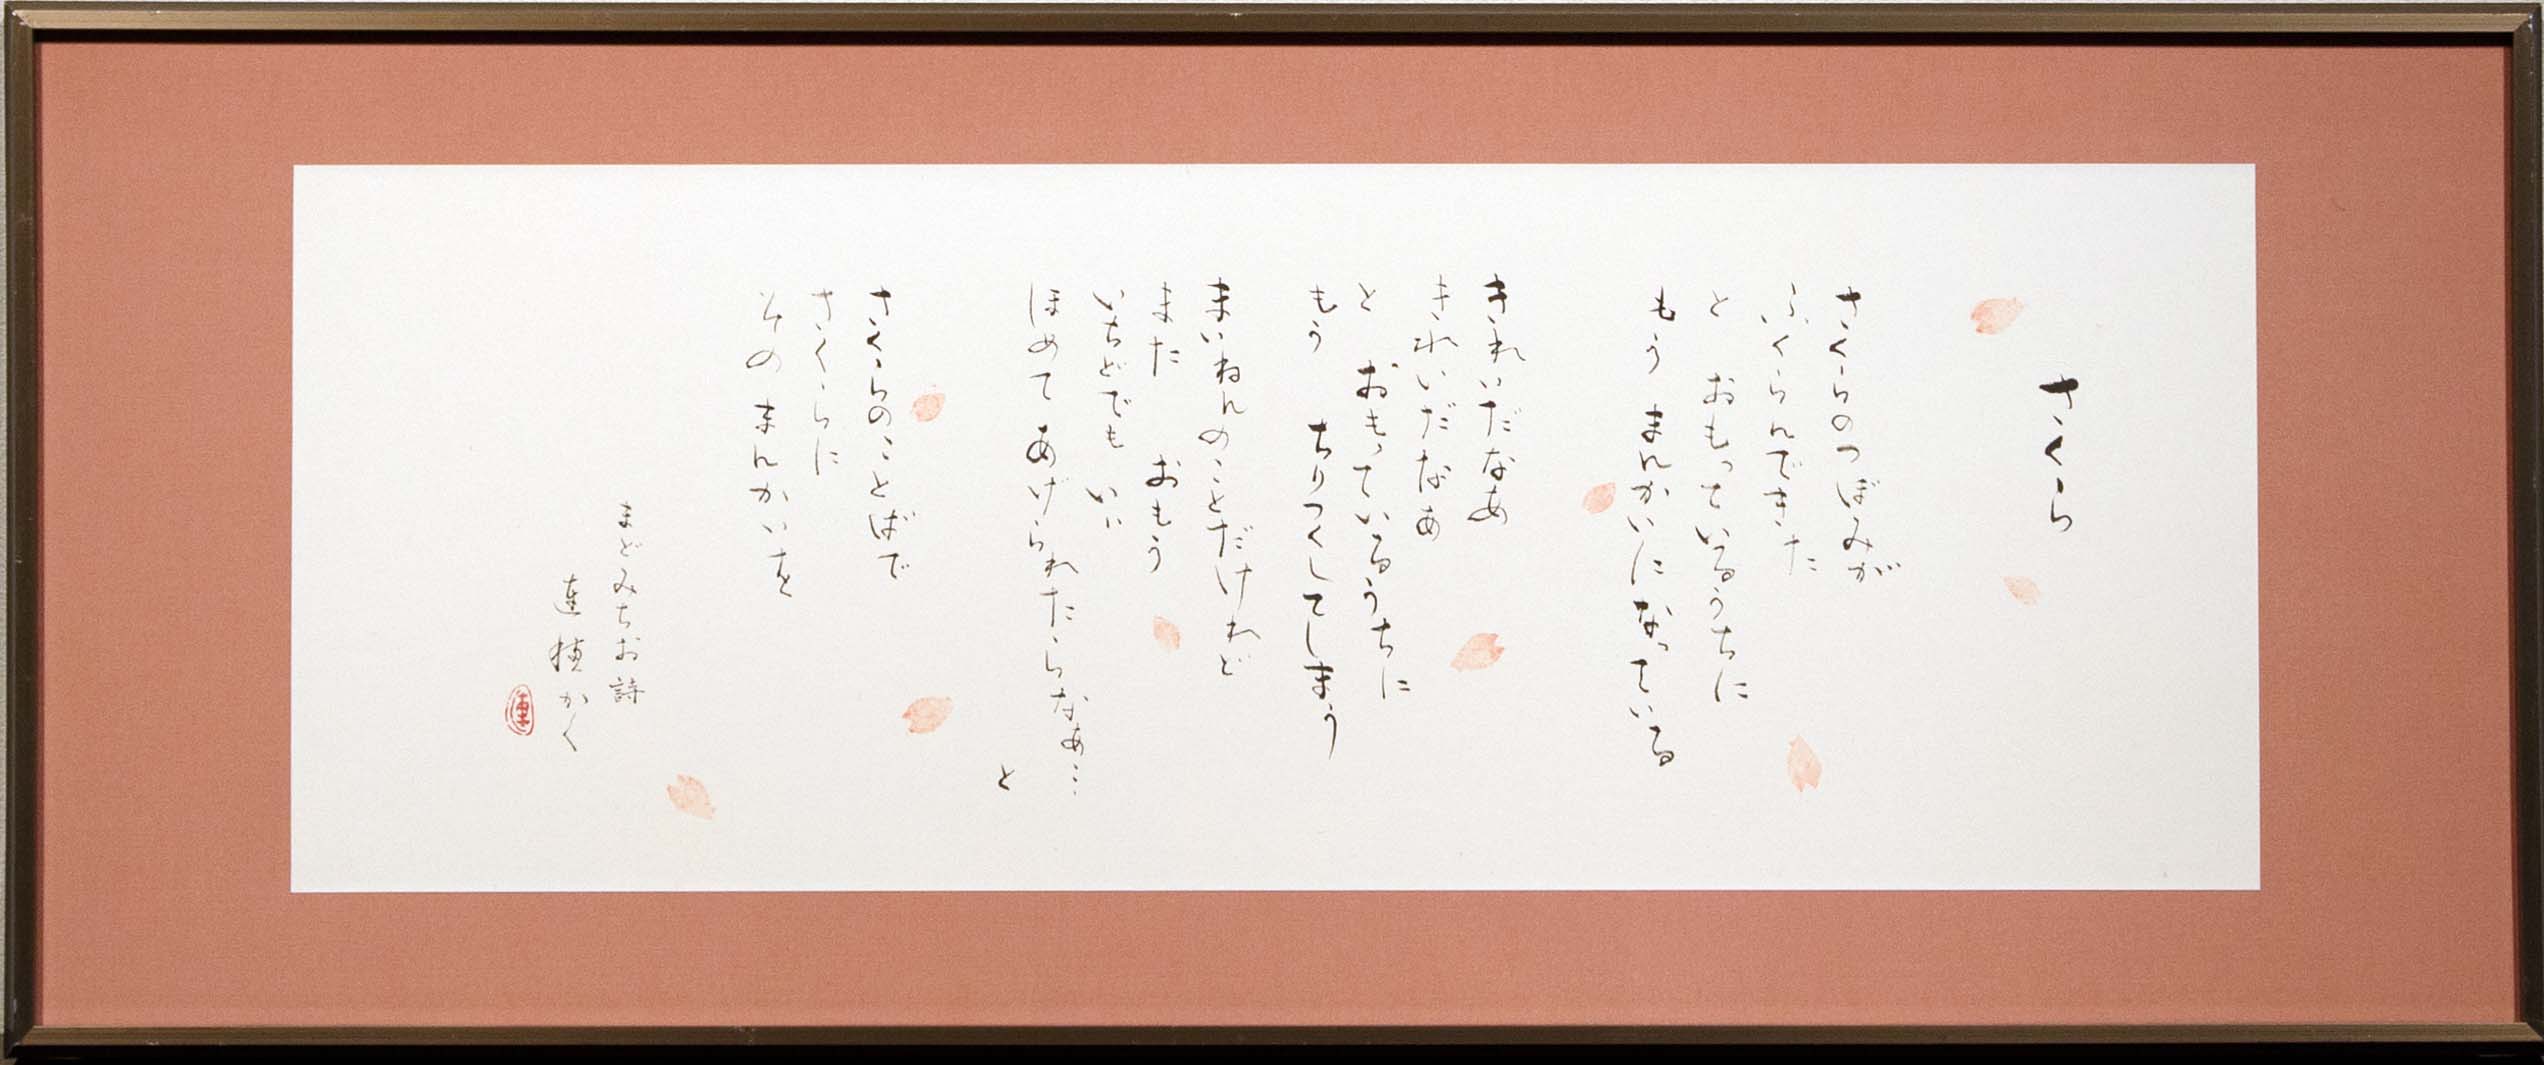 さくら
さくらのつぼみが
ふくらんできた
と おもっているうちに
もう まんかいになっている
きれいだなあ
きれいだなあ
と おもっているうちに
もう ちりつくしてしまう
まいねんのことだけれど
また おもう
いちどでも いい
ほめて あげられたらなあ…
と
さくらのことばで
さくらに
そのまんかいを
まどみちお詩
かく